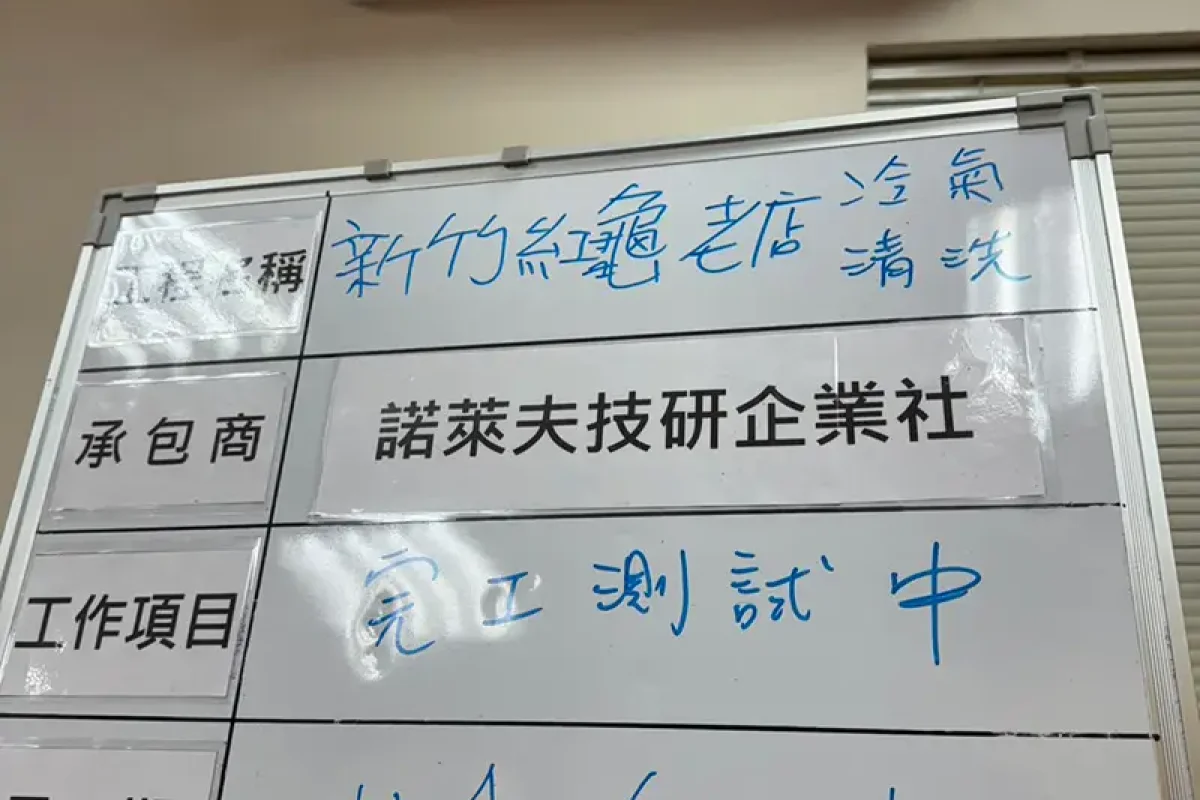 工程名稱 新竹紅龜老店 冷氣
清洗
承包商 諾萊夫技研企業社
工作項目 完工測試中